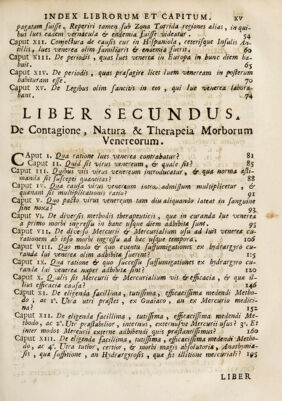 INDEX LIBRORUM ET CAPITUM. xv
pagatam fuisse, Reperiri tamen sub Zona Torrida regiones alias, in qui-
bus lues eadem vernacula & endemia fuisse videatur. 54
Caput XII. Conjectura de causis cur in Hispaniola, ceterisque Insulis An-
tillis, lues venerea olim familiaris & endemia fuerit. 60
Caput XIII. De periodis, quas lues venerea in Europa in hunc diem ha-
buit.
Caput XIV. De periodis, quas præsagire licet luem veneream in posterum
habituram esse. 70
Caput XV. De Legibus olim sancitis in eos, qui lue venerea labora-
bant. 74
LIBER SECUNDUS.
De Contagione, Natura & Therapeia Morborum
Venereorum.
CAput I. Qua ratione lues venerea contrahatur? 81
Caput II. Quid sit virus venereum, & quale sit? 85
Caput III. Quibus viis virus venereum introducatur, & qua norma æsti-
manda sit suscepta quantitas? 88
Caput IV. Qua causa virus venereum intro admissum multiplicetur, &
quanam sit multiplicationis ratio? 91
Caput V. Quo pacto virus venereum tam diu aliquando lateat in sanguine
sine noxa? 93
Caput VI. De diversis methodis therapeuticis, quæ in curanda lue venerea
a primo morbi ingressu in hunc usque diem adhibitæ sunt. 95
Caput VII. De diverso Mercurii & Mercurialium usu ad luis venereæ cu-
rationem ab ipso morbi ingressu ad hæc usque tempora. 106
Caput VIII. Quo modo & quo eventu suffumigationes ex hydrargyro cu-
randæ lui venereæ olim adhibitæ fuerint? 115
Caput IX. Qua ratione & quo successu suffumigationes ex hydrargyro cu-
randæ lui venereæ nuper adhibitæ sint? 120
Caput X. Qualis sit Mercurii & Mercurialium vis & efficacia, & quæ il-
lius efficaciæ causa? 146
Caput XI. De eligenda facillima, tutissima, efficacissima medendi Metho-
do; ac 1°. Utra utri præstet, ex Guaiaco, an ex Mercurio medici-
na? 152
Caput XII. De eligenda facillima, tutissima, efficacissima medendi Me-
thodo, ac 2°. Uter præstabilior, internus, externusve Mercurii usus? 3°. Et
inter modos Mercurii externe adhibendi quis præstantissimus? 160
Caput XIII. De eligenda facillima, tutissima, efficacissima medendi Metho-
do, ac 4°. Utra tutior, certior, & morbi magis absolutoria, Anathymia-
sis, quæ suffitione, an Hydrargyrosis, quæ fit illitione mercuriali? 195
LIBER